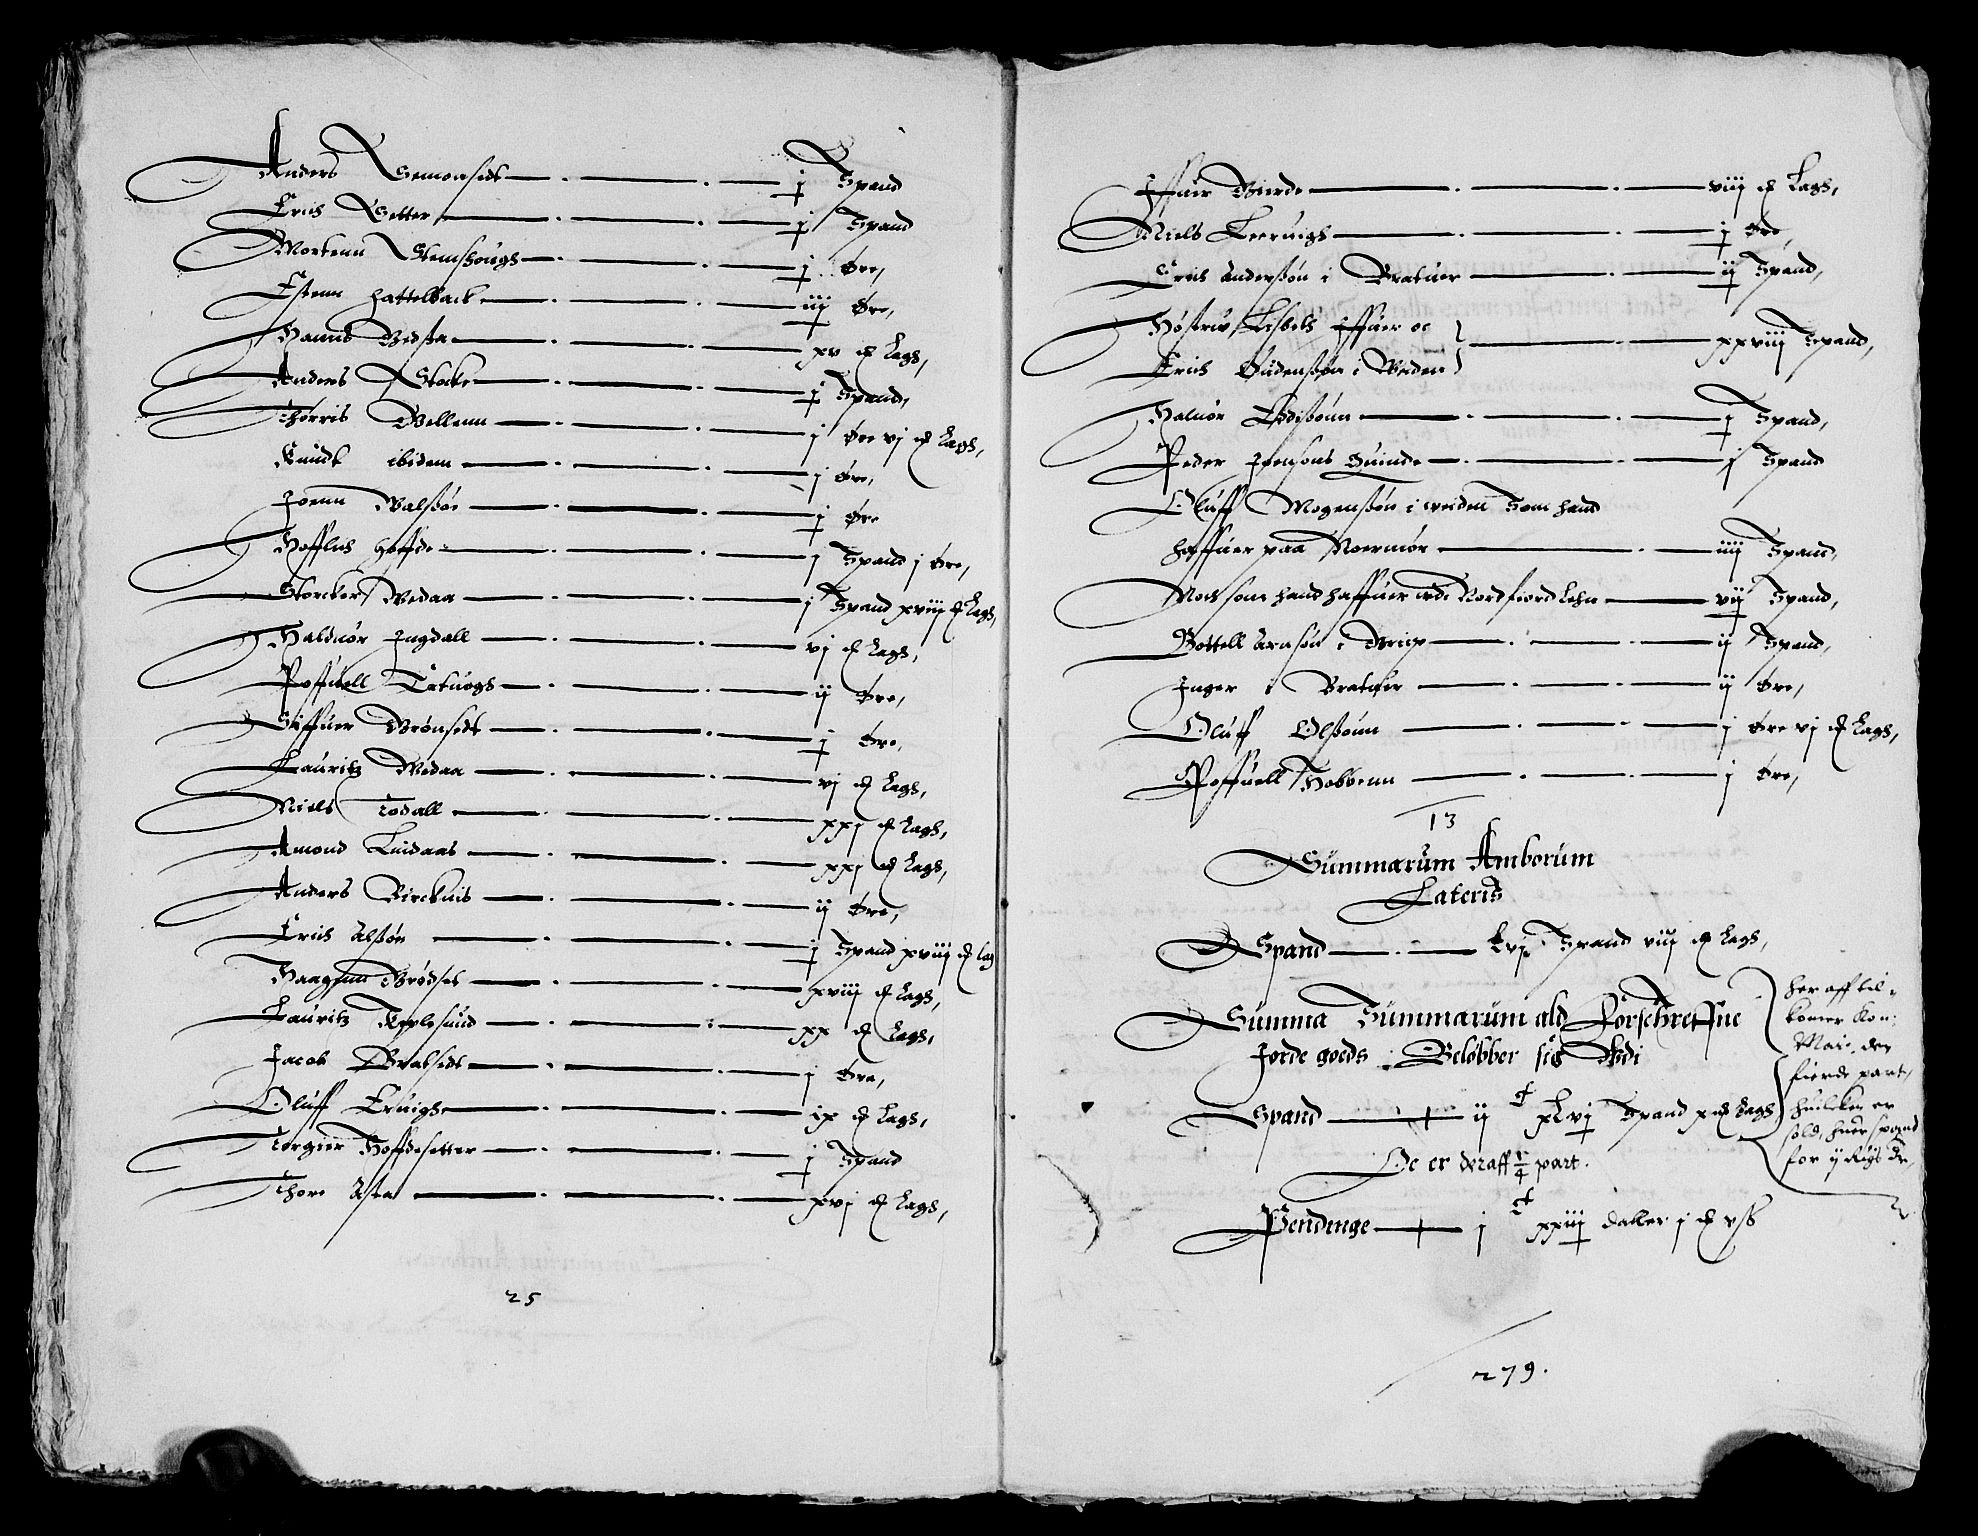 Anders Semonsett j Spand
Erich Setter j Spand
Mortenn Stemshougs j Øre,
Estenn Hattelback iij Øre,
Hanns Vedsta xv ₰ Lags,
Anders Stocke j Spand,
Thørris Vellenn j Øre vj ₰ Lags,
Knudt ibidem j Øre,
Joenn Valssøe j Øre
j Spand j Øre,
Størcker Vedaa j Spand xviij ₰ Lags,
Halduor Ingdall vj ₰ Lags,
Poffuell Tætuogs ij Øre,
Siffuer Brønsett j Øre,
Lauritz Vedaa vj ₰ Lags,
Niels Todall xxj ₰ Lags,
Amond Luidaas xxj ₰ Lags,
Anders Birknis ij Øre,
Erich Alssøn j Spand xviij ₰ Lag
Haagenn Brødset xviij ₰ Lags,
Lauritz Kyplesund xx ₰ Lags,
Jacob Bralsett j Øre,
Oluff Eruigh ix ₰ Lags,
Torgier Hoffdesetter j Spand
Thore Asta xvj ₰ Lags,
25
Iffuer Bierde viij ₰ Lags,
Niels Leeruigh j Øre,
Erich Anderssøn i Bratuer ij Spand,
Høstru Lisbeth Iffuer oc
Erich Audenssøn i Veiden xxviij Spand,
Haluor Edissønn j Spand,
Peder Joensøns Quinde j Spand
Oluff Mogenssøn i veiden Som hand
haffuer paa Noermør iiij Spand,
Noch som hand haffuer vdi Nordfiord Lehn vij Spand,
Bottell Arnsøn i Strip ij Spand,
Inger i Bratuer ij Øre,
Oluff Olssønn j Øre vj ₰ Lags,
Poffuell Hobbenn j Øre,
13
Summarum Amborum
Lateris
Spand Lvj Spand viij ₰ Lags,
Summa Summarum ald Forschreffne
Jorde goeds Beløbber sig Vdi
Spand ij c xLvj Spand x ₰ Lags
Oc er deraff 1/4 part.
Pendinge j c xxiij daller j ₰ vss
her aff til-
komer Kon:
Mai: den
fierde part,
huilcken er
sold, huer spand
for ij Rigs Dr,
279.